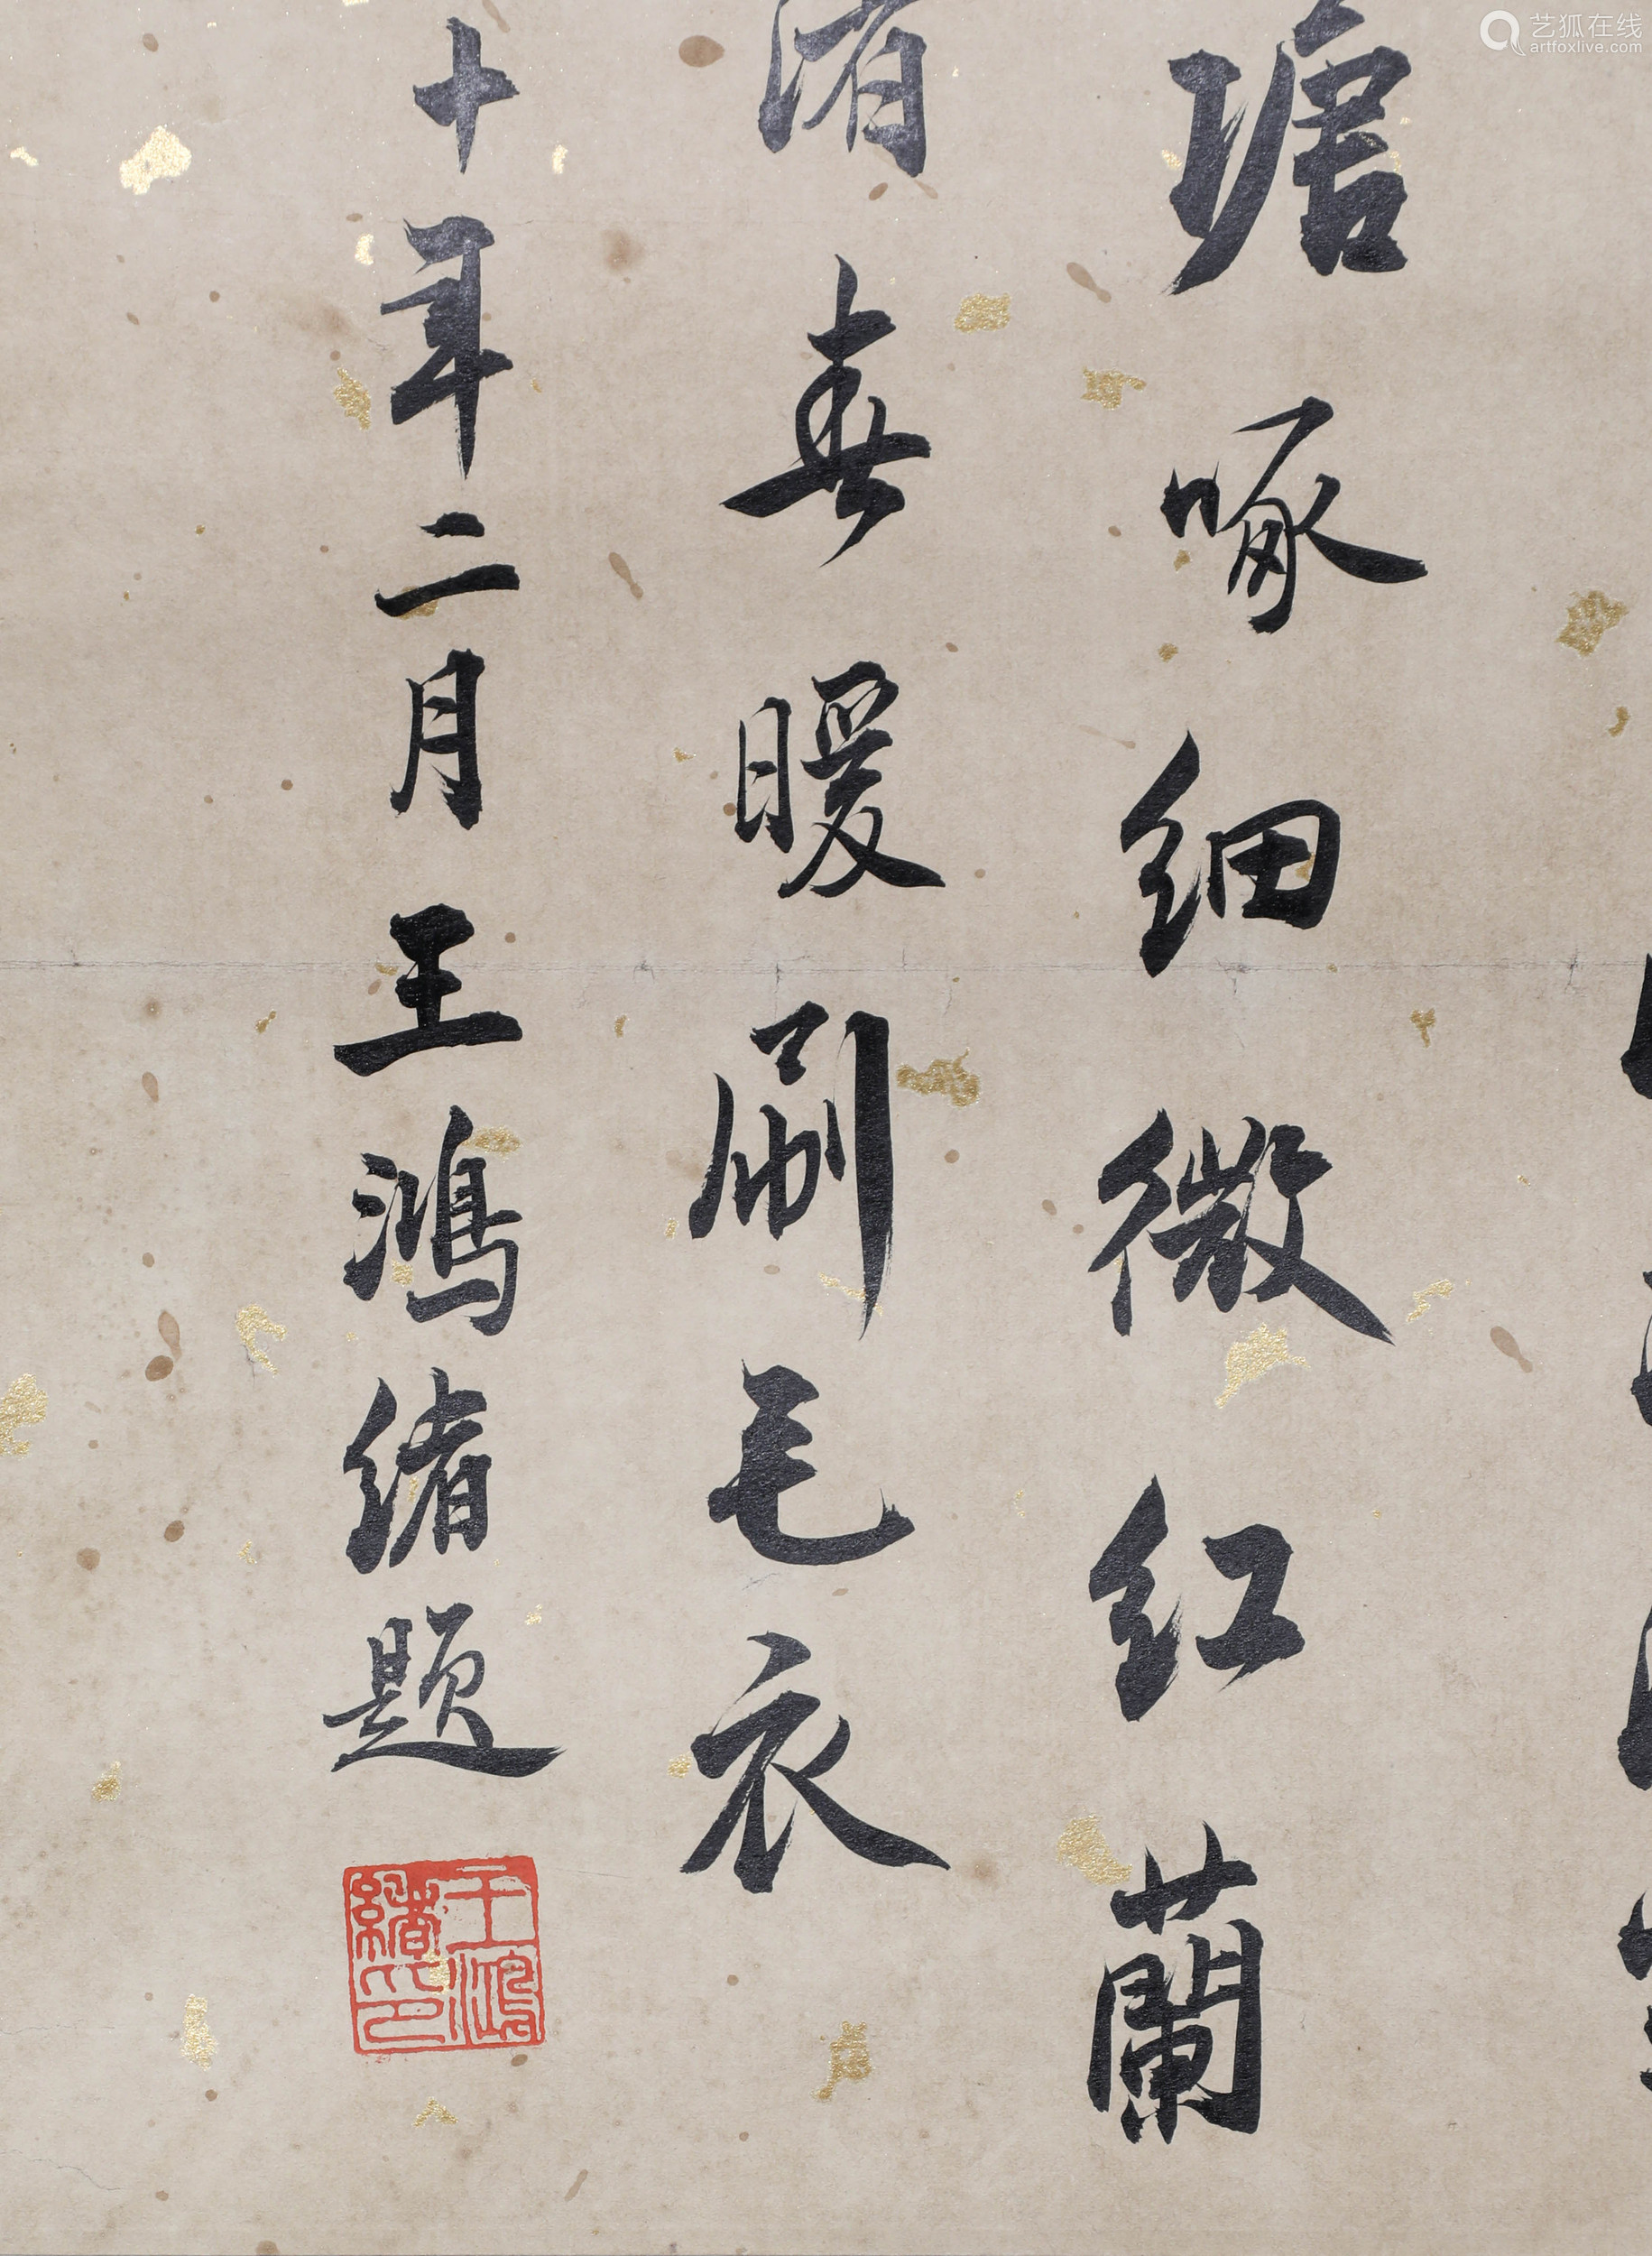 瑭啄细微红蘭
渚春暖刷毛衣
十年二月王鴻緒题
王鴻緒印
艺狐在线
artfoxlive.com